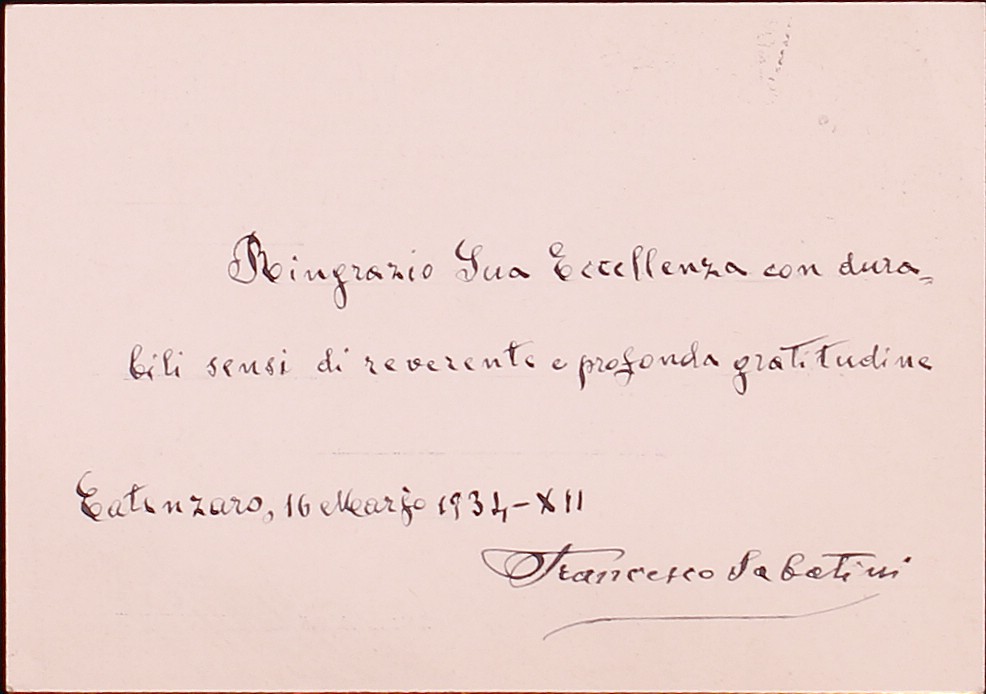 Ringrazio Sua Eccellenza con dura=
bili sensi di reverente e profonda gratitudine
Catanzaro, 16 Marzo 1934-XII
Francesco Sabatini